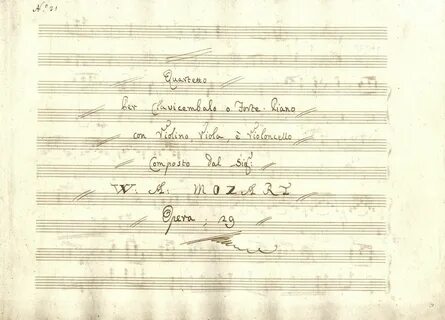 N.º 21
Quartetto
Per Clavicembalo o Forte-Piano
con Violino, Viola, è Violoncello
Composto Dal Sig.r
W: A: MOZART
Opera: 29